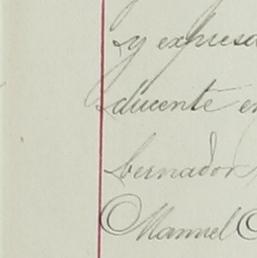 y expresa
ducente en
bernador
Manuel